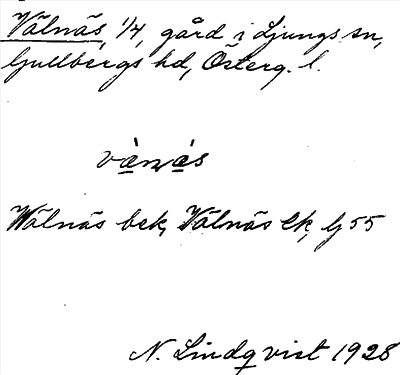 Välnäs, 1/4, gård i Ljungs sn,
Gullbergs hd, Österg. l.
vä̀nä̀s
Wälnäs bek, Välnäs Ek, G 55
N. Lindqvist 1928